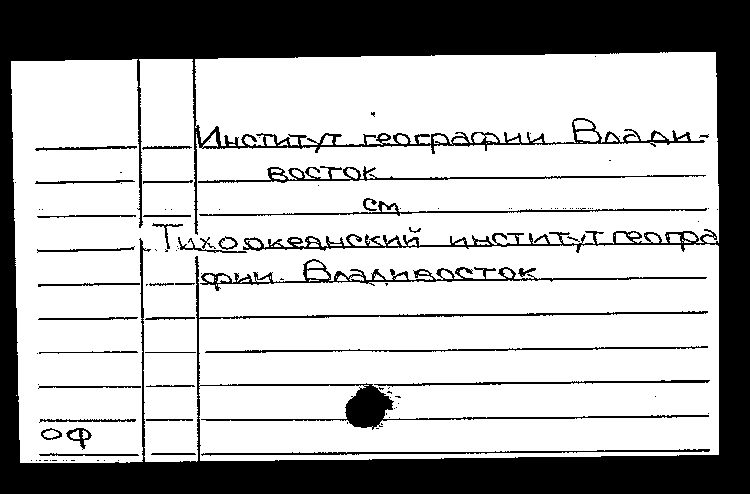 Институт географии Влади-
восток
см
Тихоокеанский институт геогра
фии. Владивосток
ОФ